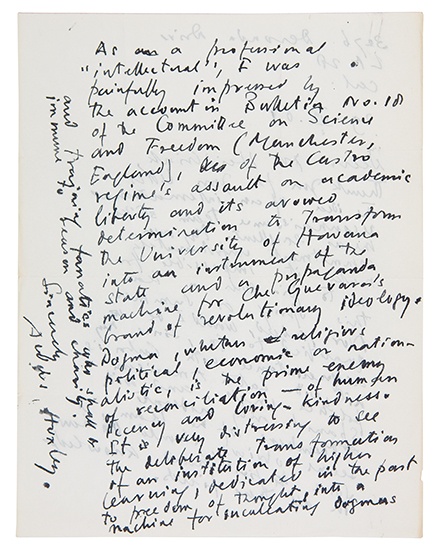 As a professional
"intellectual", I was
painfully impressed by
the account in Bulletin No. 18
of the Committee on Science
and Freedom (Manchester,
England), of the Castro
regime's assault on academic
liberty and its avowed
determination to transform
the University of Havana
into an instrument of the
state and a propaganda
machine for Che Guevara's
brand of revolutionary ideology.
Dogma, whether religious
political, economic or nation-
alistic, is the prime enemy
of reconciliation — of human
decency and loving-kindness.
It is very distressing to see
the deliberate transformation
of an institution of higher
learning, dedicated in the past
to freedom of thought, into a
machine for inculcating dogmas
and training fanatics who shall be
immune to reason and charity.
Sincerely
Aldous Huxley.